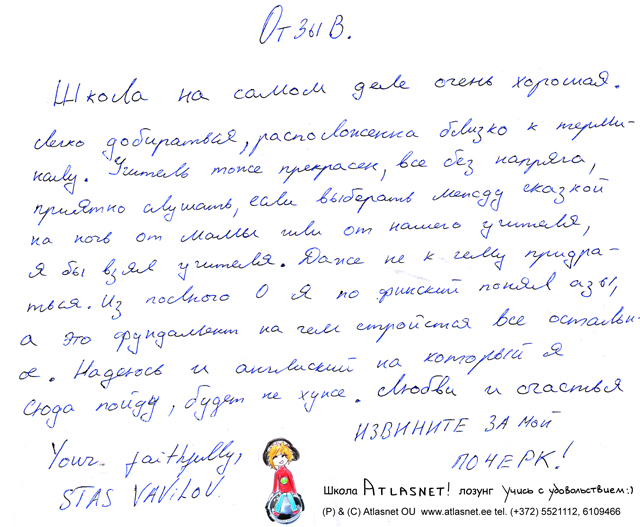 Отзыв.
Школа на самом деле очень хорошая.
Легко добираться, расположенна близко к терми-
налу. Учитель тоже прекрасен, все без напряга,
приятно слушать, если выберать между сказкой
на ночь от мамы или от нашего учителя,
я бы взял учителя. Даже не к чему придра-
ться. Из полного 0 я по финский понял азы,
а это фундамент на чем стройстся все остальн-
ое. Надеюсь и английский на который я
сюда пойду, будет не хуже. Любви и счастья
ИЗВИНИТЕ ЗА МОЙ
ПОЧЕРК!
Your faithfully,
STAS VAVILOV.
Школа ATLASNET! лозунг Учись с удовольствием:)
(P) & (C) Atlasnet OU www.atlasnet.ee tel. (+372) 5521112, 6109466